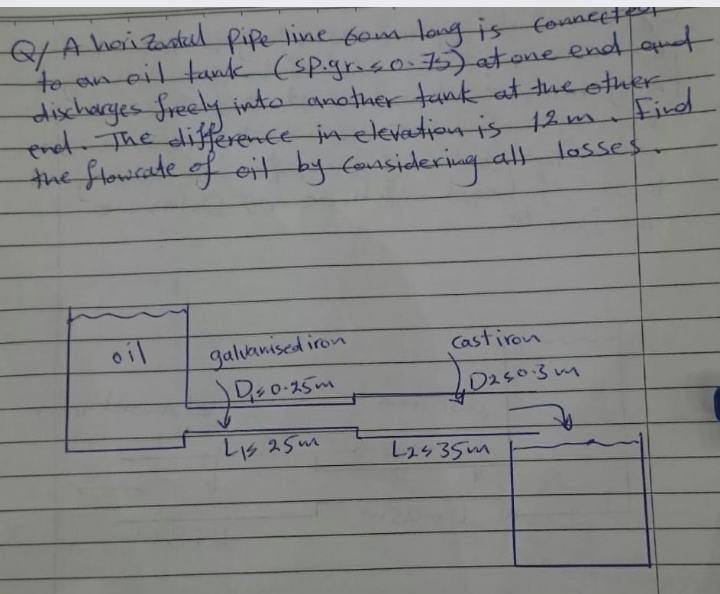 Q/ A horizontal pipe line 60m long is connected
to an oil tank (sp.gr. = 0.75) at one end and
discharges freely into another tank at the other
end. The difference in elevation is 12 m. Find
the flowrate of oil by considering all losses.
oil
galvanised iron
cast iron
D1 = 0.25m
D2 = 0.3 m
L1 = 25m
L2 = 35m